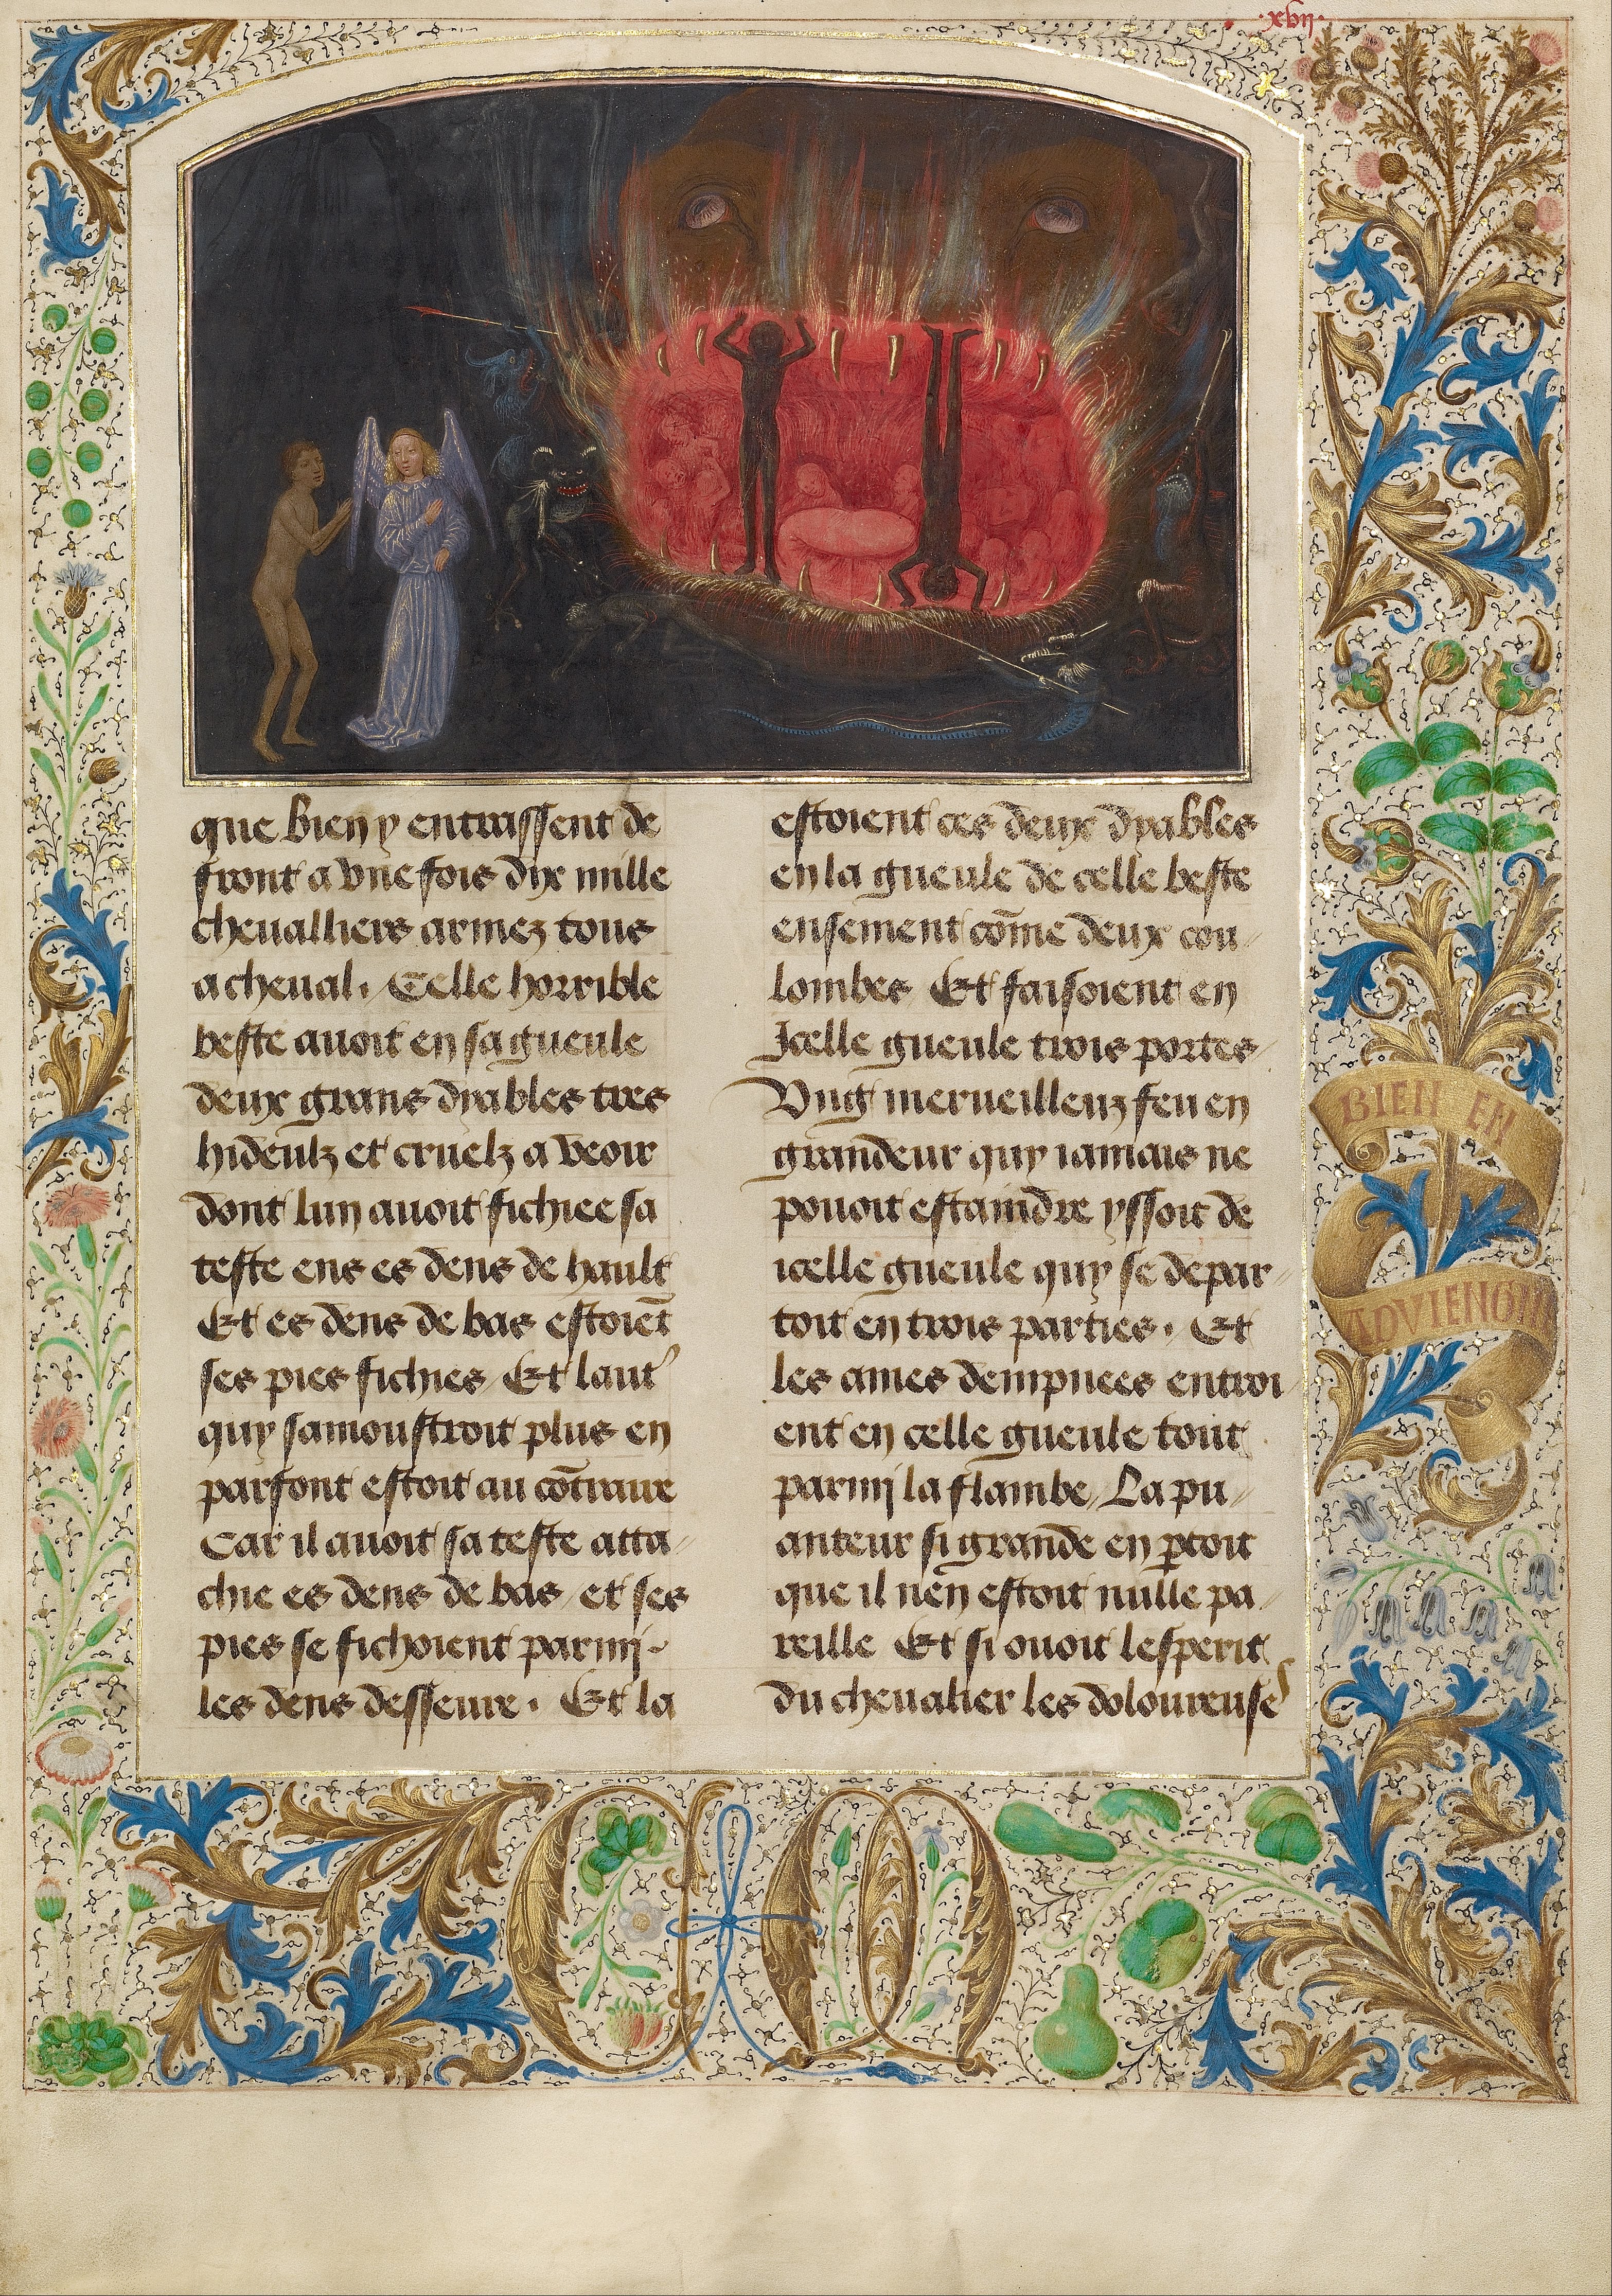 ·xvij·
que bien y entrassent de
front a vne fois dix mille
cheualliers armez tous
a cheual. Celle horrible
beste auoit en sa gueule
deux grans dyables tres
hideulz et cruelz a veoir
dont lun auoit fichiee sa
teste ens es dens de hault
Et es dens de bas estoiēt
ses pies fichies / Et laut᾿
quy samoustroit plus en
parfont estoit au cōtraire
Car il auoit sa teste atta-
chie es dens de bas / et ses
pies se fichoient parmi-
les dens desseure. Et la
estoient ces deux dyables
en la gueule de celle beste
ensement cōme deux cou-
lombes Et faisoient en
Icelle gueule trois portes
Vng merueilleuz feu en
grandeur quy iamais ne
pouoit estaindre yssoit de
icelle gueule quy se depar-
toit en trois parties. Et
les ames dempnees entroi
ent en celle gueule tout
parmi la flambe / La pu-
anteur si grande en ꝑtoit
que il nen estoit nulle pa-
reille Et si ouoit lesperit
du cheualier les doloureuses
BIEN EN
ADVIENGNE